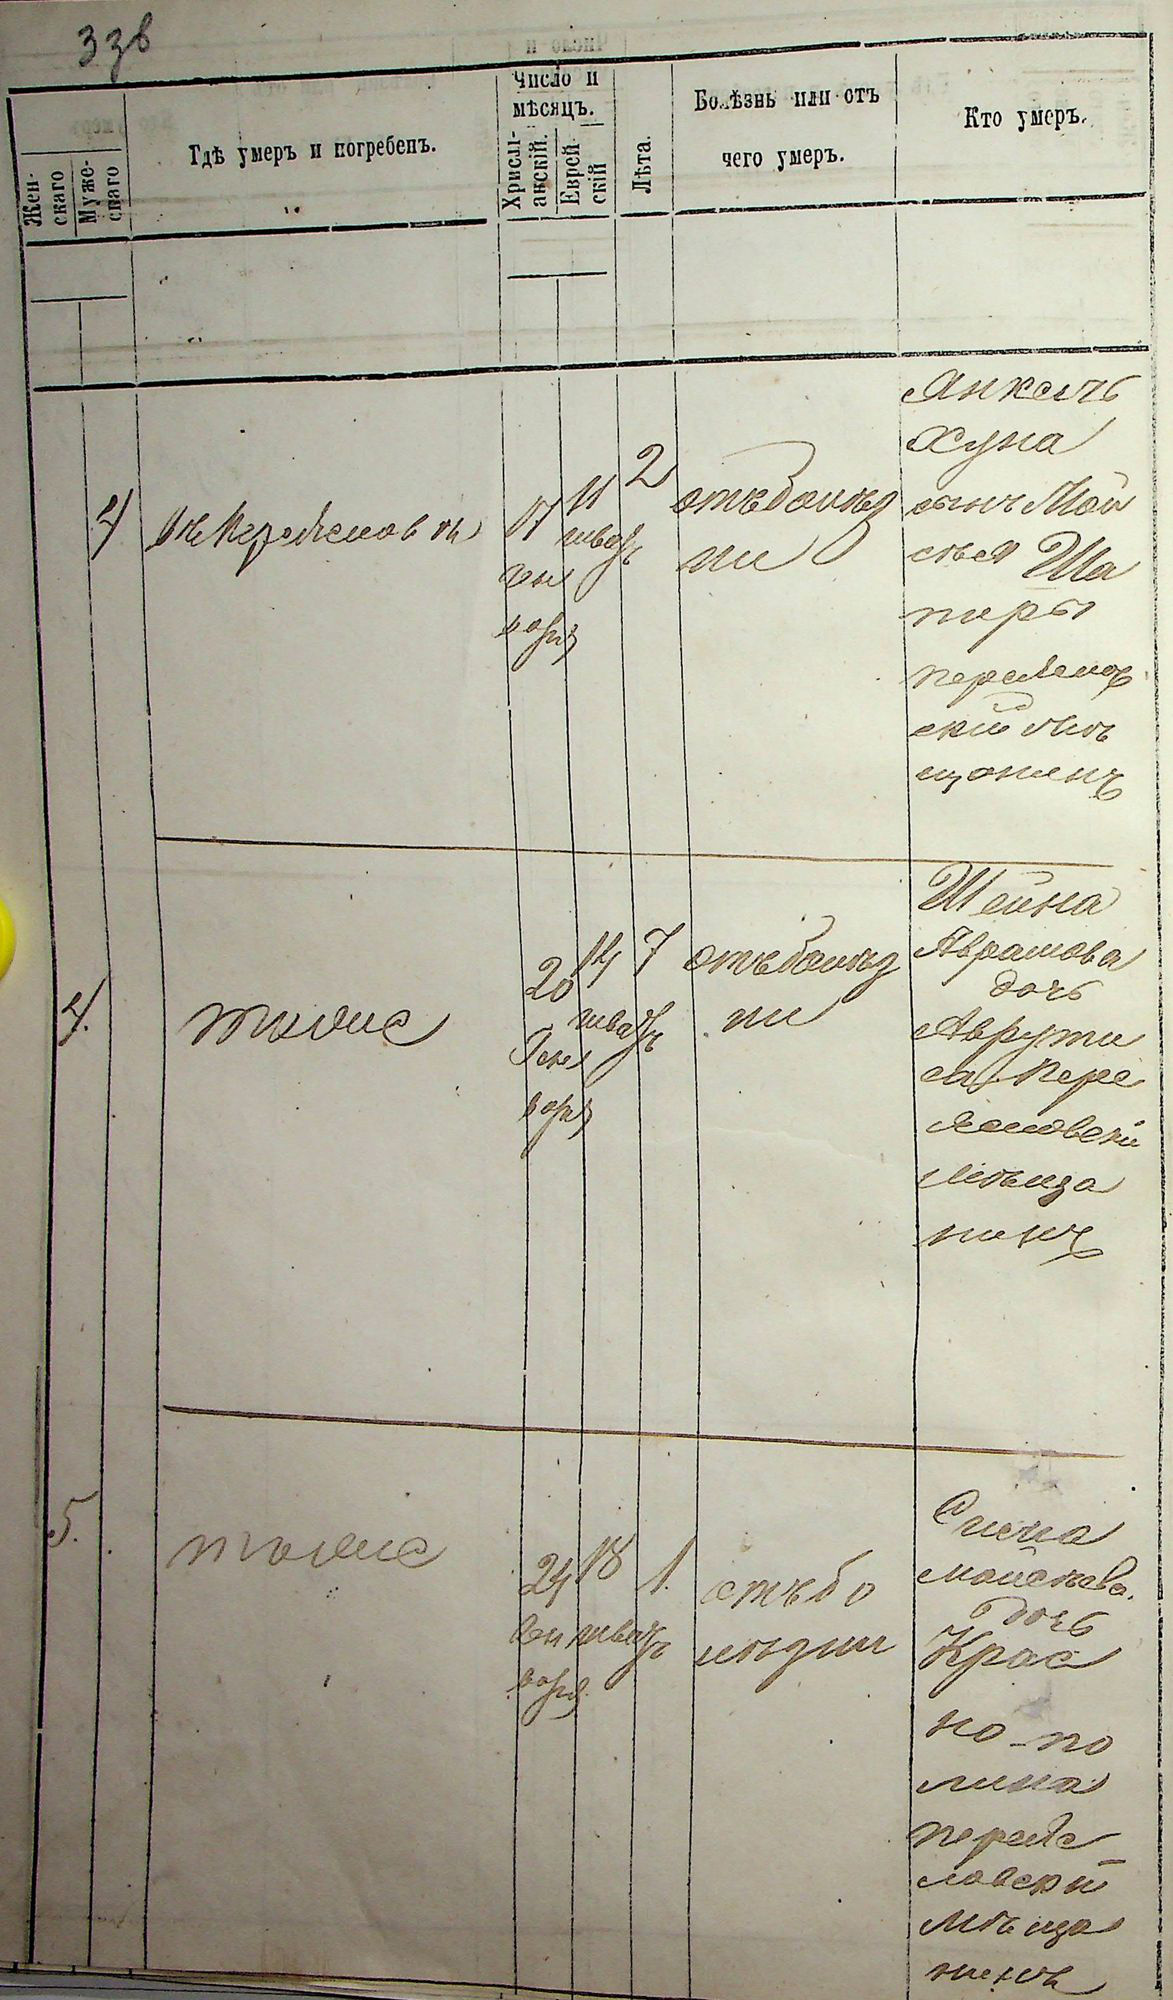 338
Жен-
скаго
Муже-
скаго
Гдѣ умеръ и погребенъ.
Число и
мѣсяцъ.
Христі-
анскій.
Еврей-
скій
Лѣта.
Болѣзнь или отъ
чего умеръ.
Кто умеръ.
4
въ Переяславѣ
17
Ген
варя
11
шватъ
2
отъ болѣз
ни
Янкель
Хуна
сынъ Мои
сѣя Ша
пиры
переяслов
скій мѣ
щанинъ
4.
тоже
20
Ген
варя
14
шватъ
7
отъ болѣз
ни
Шейна
Аврамова
дочь
Аврути
са Пере
ясловскій
мѣща
нинъ
5.
тоже
24
Ген
варя
18
шватъ
1.
отъ бо
лѣзни
мойсѣева
дочь
Крас
но-по
лина
переяс
ловскій
мѣща
нинъ